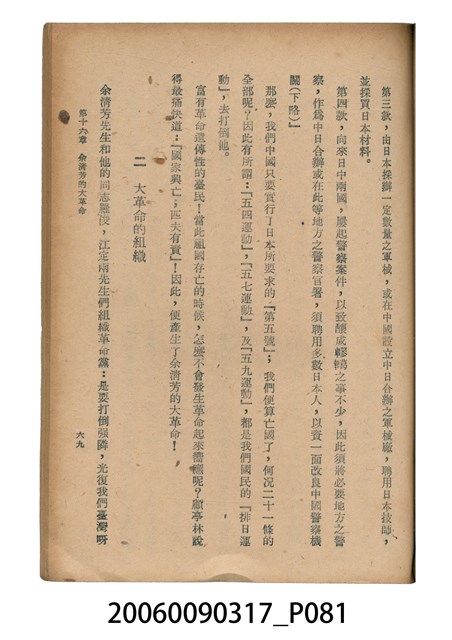 第三款，由日本採辦一定數量之軍械，或在中國設立中日合辦之軍械廠，聘用日本技師，
並採買日本材料。
第四款，向來日中兩國，屢起警察案件，以致釀成轇轕之事不少，因此須將必要地方之警
察，作爲中日合辦或在此等地方之警察官署，須聘用多數日本人，以資一面改良中國警察機
關（下略）」
那麼，我們中國只要實行了日本所要求的「第五號」；我們便算亡國了，何況二十一條的
全部呢？因此有所謂：「五四運動」，「五七運動」，及「五九運動」，都是我們國民的「排日運
動」，去打倒他。
富有革命遺傳性的臺民！當此祖國存亡的時候，怎麼不會發生革命起來響應呢？顧亭林說
得最痛快道：『國家興亡；匹夫有責』！因此，便產生了余清芳的大革命！
二　大革命的組織
余清芳先生和他的同志羅俊，江定兩先生們組織革命黨：是要打倒強隣，光復我們臺灣呀
第十六章　余清芳的大革命
六九
20060090317_P081